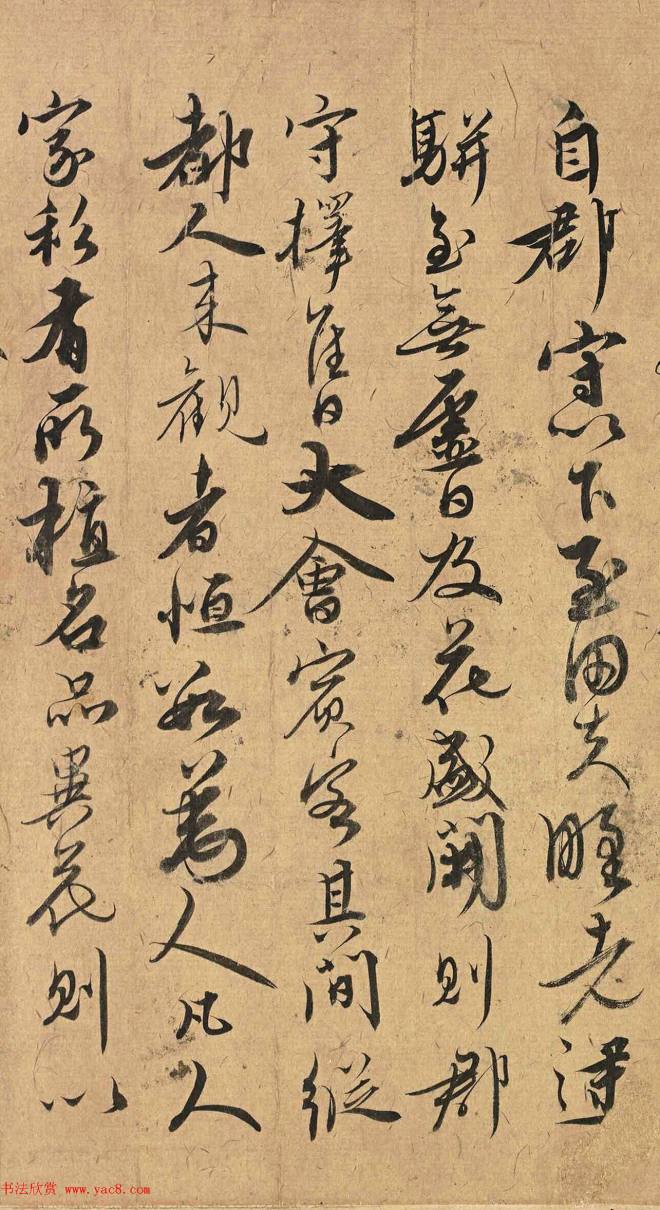 自郡守以下至田夫老
駢至無虛日及花盛開則郡
守擇佳日大會賓客其間縱
都人來觀者恒數萬人凡人
家私有所植名品異花則以
书法欣赏 www.yac8.com